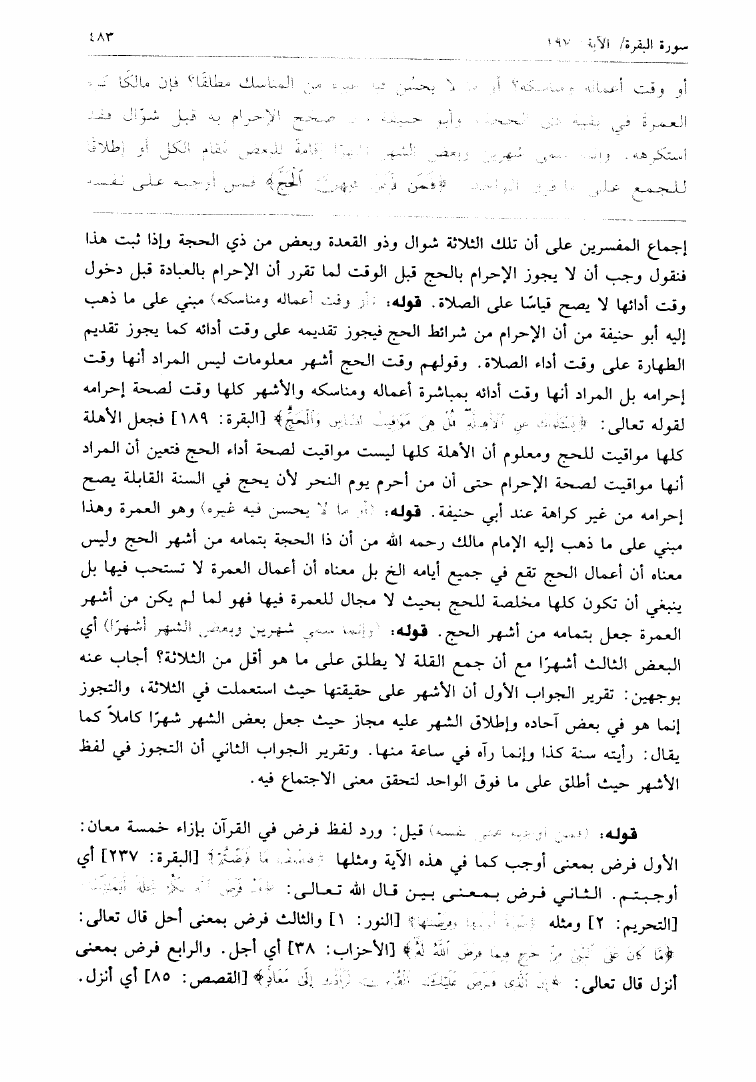 سورة البقرة/ الآية ١٩٧
٤٨٣
أو وقت أعماله ومناسكه؟ أو ما لا يحسن فيه غيره من المناسك مطلقًا؟ فإن مالكًا كره
العمرة في بقية ذي الحجة. وأبو حنيفة صحح الإحرام به قبل شوّال فقد
استكرهه. وإنما سمى شهرين وبعض الشهر إقامةً للبعض مُقام الكل أو إطلاقًا
للجمع على ما فوق الواحد. ﴿فَمَن فَرَضَ فِيهِنَّ ٱلْحَجَّ﴾ فمن أوجبه على نفسه
إجماع المفسرين على أن تلك الثلاثة شوال وذو القعدة وبعض من ذي الحجة وإذا ثبت هذا
فنقول وجب أن لا يجوز الإحرام بالحج قبل الوقت لما تقرر أن الإحرام بالعبادة قبل دخول
وقت أدائها لا يصح قياسًا على الصلاة. قوله: (أو وقت أعماله ومناسكه) مبني على ما ذهب
إليه أبو حنيفة من أن الإحرام من شرائط الحج فيجوز تقديمه على وقت أدائه كما يجوز تقديم
الطهارة على وقت أداء الصلاة. وقولهم وقت الحج أشهر معلومات ليس المراد أنها وقت
إحرامه بل المراد أنها وقت أدائه بمباشرة أعماله ومناسكه والأشهر كلها وقت لصحة إحرامه
لقوله تعالى: ﴿يَسْـَٔلُونَكَ عَنِ ٱلْأَهِلَّةِ قُلْ هِىَ مَوَٰقِيتُ لِلنَّاسِ وَٱلْحَجِّ﴾ [البقرة: ١٨٩] فجعل الأهلة
كلها مواقيت للحج ومعلوم أن الأهلة كلها ليست مواقيت لصحة أداء الحج فتعين أن المراد
أنها مواقيت لصحة الإحرام حتى أن من أحرم يوم النحر لأن يحج في السنة القابلة يصح
إحرامه من غير كراهة عند أبي حنيفة. قوله: (أو ما لا يحسن فيه غيره) وهو العمرة وهذا
مبني على ما ذهب إليه الإمام مالك رحمه الله من أن ذا الحجة بتمامه من أشهر الحج وليس
معناه أن أعمال الحج تقع في جميع أيامه الخ بل معناه أن أعمال العمرة لا تستحب فيها بل
ينبغي أن تكون كلها مخلصة للحج بحيث لا مجال للعمرة فيها فهو لما لم يكن من أشهر
العمرة جعل بتمامه من أشهر الحج. قوله: (وإنما سمي شهرين وبعض الشهر أشهرًا) أي
البعض الثالث أشهرًا مع أن جمع القلة لا يطلق على ما هو أقل من الثلاثة؟ أجاب عنه
بوجهين: تقرير الجواب الأول أن الأشهر على حقيقتها حيث استعملت في الثلاثة، والتجوز
إنما هو في بعض آحاده وإطلاق الشهر عليه مجاز حيث جعل بعض الشهر شهرًا كاملاً كما
يقال: رأيته سنة كذا وإنما رآه في ساعة منها. وتقرير الجواب الثاني أن التجوز في لفظ
الأشهر حيث أطلق على ما فوق الواحد لتحقق معنى الاجتماع فيه.
قوله: (فمن أوجبه على نفسه) قيل: ورد لفظ فرض في القرآن بإزاء خمسة معان:
الأول فرض بمعنى أوجب كما في هذه الآية ومثلها ﴿فَنِصْفُ مَا فَرَضْتُمْ﴾ [البقرة: ٢٣٧] أي
أوجبتم. الثاني فرض بمعنى بين قال الله تعالى: ﴿قَدْ فَرَضَ ٱللَّهُ لَكُمْ تَحِلَّةَ أَيْمَٰنِكُمْ﴾
[التحريم: ٢] ومثله ﴿سُورَةٌ أَنزَلْنَٰهَا وَفَرَضْنَٰهَا﴾ [النور: ١] والثالث فرض بمعنى أحل قال تعالى:
﴿مَّا كَانَ عَلَى ٱلنَّبِىِّ مِنْ حَرَجٍ فِيمَا فَرَضَ ٱللَّهُ لَهُۥ﴾ [الأحزاب: ٣٨] أي أجل. والرابع فرض بمعنى
أنزل قال تعالى: ﴿إِنَّ ٱلَّذِى فَرَضَ عَلَيْكَ ٱلْقُرْءَانَ لَرَآدُّكَ إِلَىٰ مَعَادٍ﴾ [القصص: ٨٥] أي أنزل.